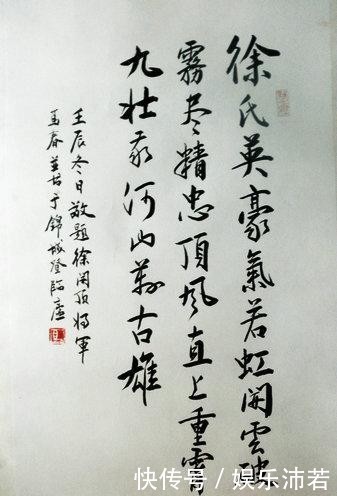 徐氏英豪氣若虹開雲破
霧尽精忠頂風直上重霄
九壮我河山萬古雄
壬辰冬日敬題徐開頂將軍
馬春並书于錦城登臨廬
快传号/娱乐沛若